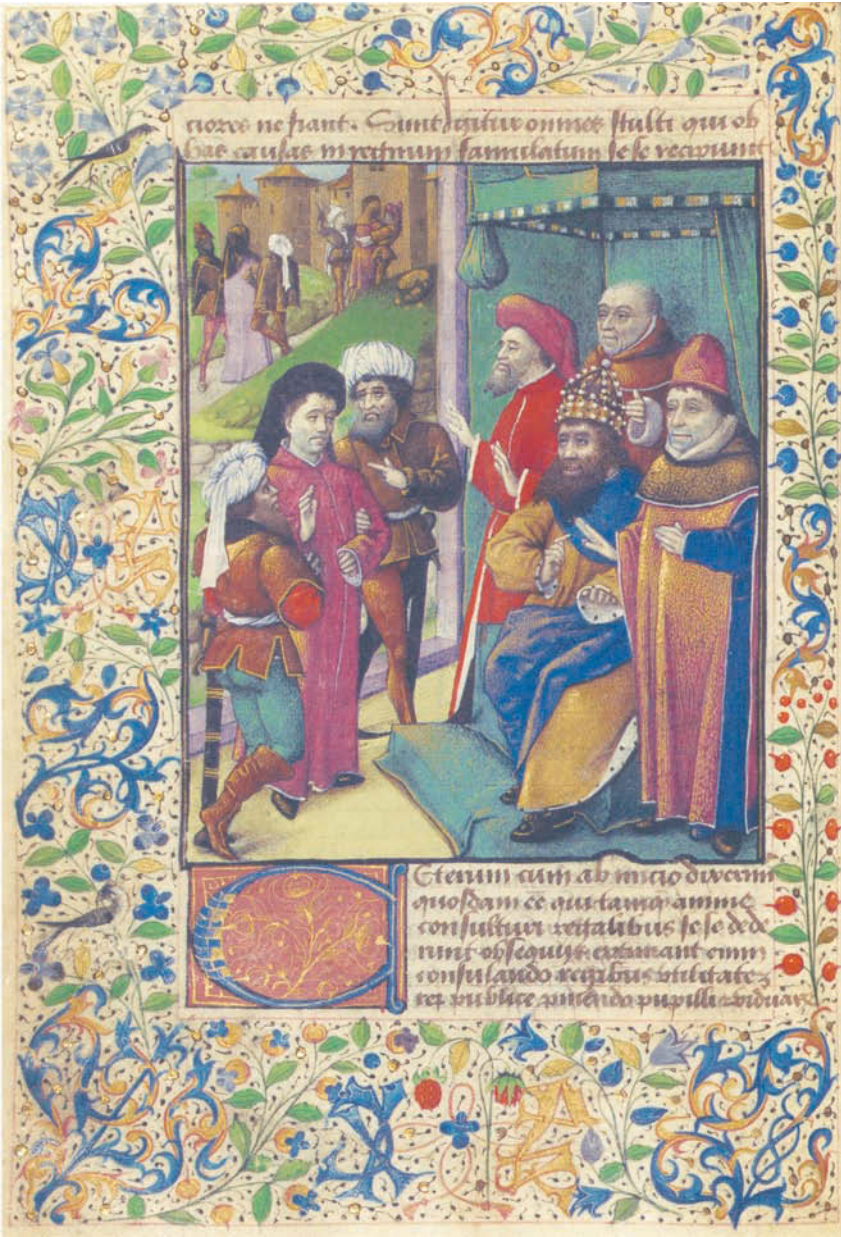 ciores ne fiant. Sunt igitur omnes stulti qui ob
has causas in regium famulatum sese recipiunt
Ceterum cum ab inicio dixerim
quosdam ee qui tamq anime
consulturi regalibus sese dede
runt obsequiis enim
consulando regibus utilitatez
rei publice pupilli viduas